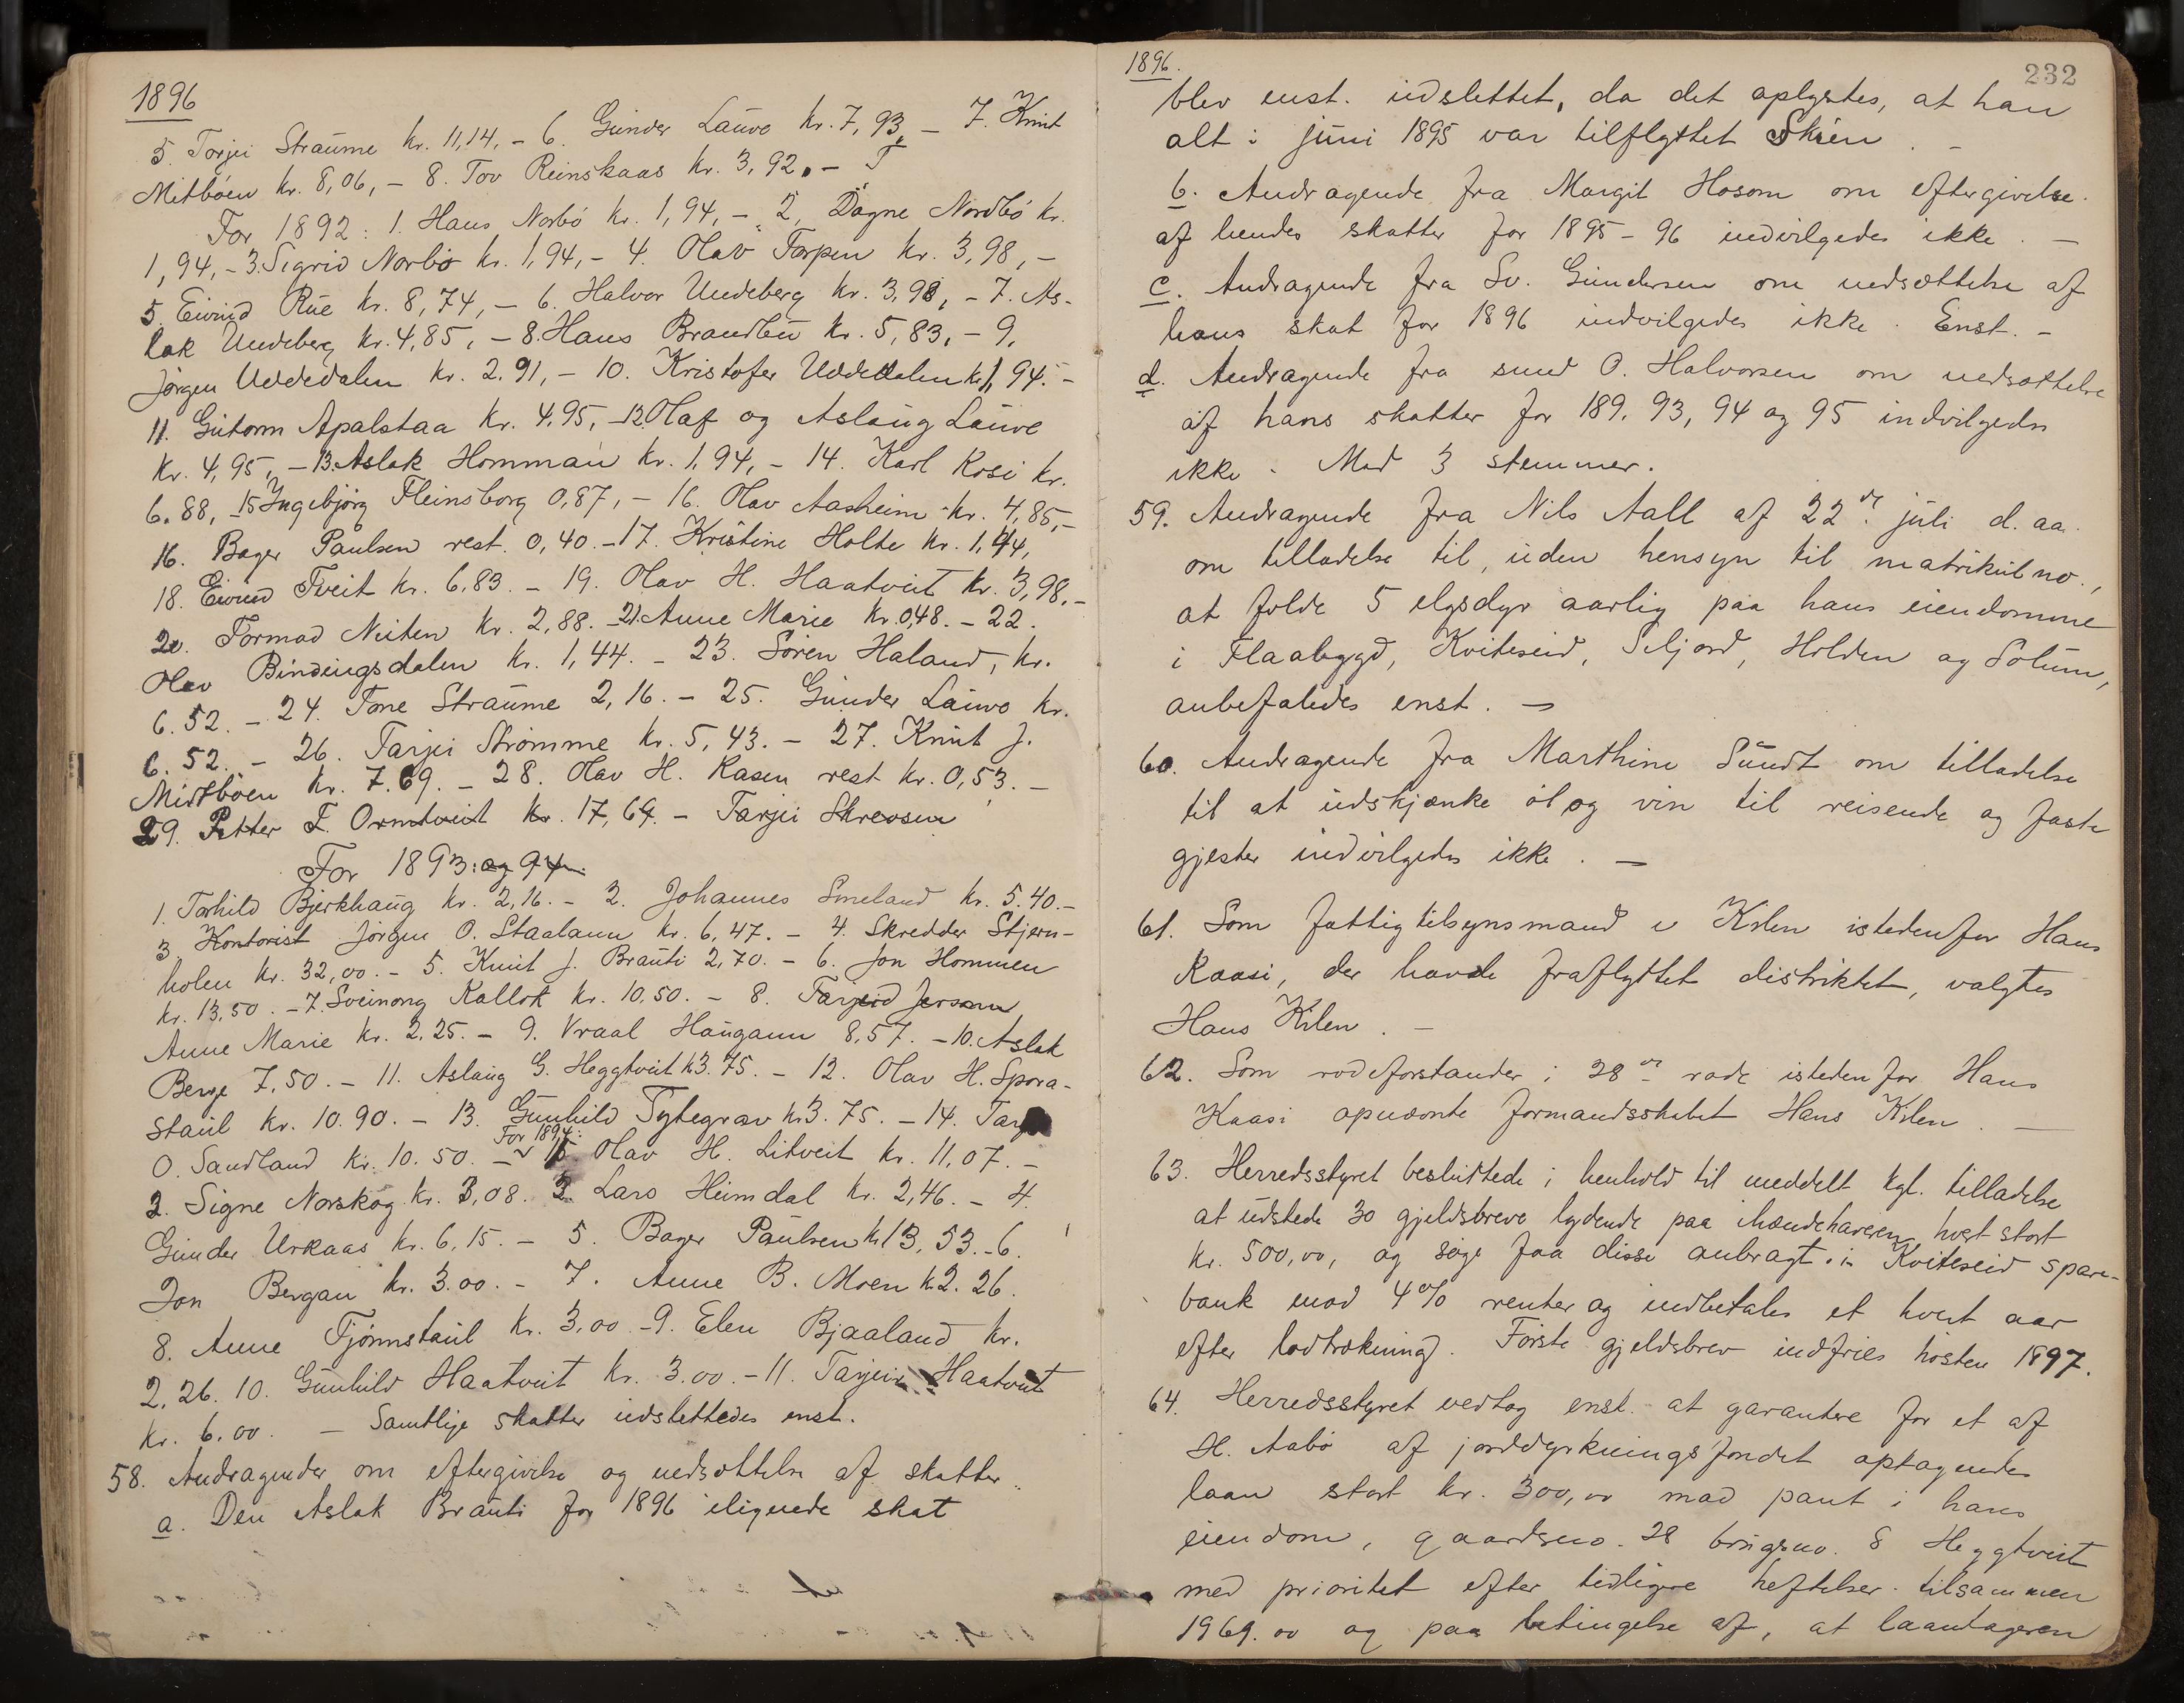 1896
5. Torjei Straume kr. 11,14, - 6. Gunder Lauvo kr. 7,93, - 7. Knut
Mitböen kr. 8,06, - 8. Tov Reinskaas kr. 3,92, -
For 1892: 1. Hans Norbö kr. 1,94, - 2. Dagne Nordbö kr.
1,94, - 3. Sigrid Norbö kr. 1,94, - 4. Olav Torpen kr. 3,98, -
5. Eivind Rue kr. 8,74, - 6. Halvor Undeberg kr. 3,98, - 7. As-
lak Undeberg kr. 4,85, - 8. Hans Brandbu kr. 5,83, - 9.
Jörgen Uddedalen kr. 2.91, - 10. Kristofer Uddedalen kr. 1,94. -
11. Gutorm Apalstaa kr. 4,95, - 12. Olaf og Aslaug Lauve
kr. 4,95, - 13. Aslak Homman kr. 1,94, - 14. Karl Kosi kr.
6.88, - 15 Ingebjörg Fleinsborg 0,87, - 16. Olav Aasheim kr. 4,85, -
16. Bager Paulsen rest. 0,40. - 17. Kristine Holte kr. 1,44,
18. Eivind Tveit kr. 6,83. - 19. Olav H. Haatveit kr. 3,98, -
20. Tormod Nuten kr. 2,88. - 21. Anne Marie kr. 0,48. - 22.
Olav Bindingsdalen kr. 1,44. - 23. Sören Haland, kr.
6.52. - 24. Tone Straume 2,16. - 25. Gunder Lauvo kr.
6.52. - 26. Tarjei Strömme kr. 5,43. - 27. Knut J.
Midtböen kr. 7.69. - 28. Olav H. Kasen rest kr. 0,53. -
29. Petter T. Ormtveit kr. 17,64. - Tarjei Skrevsen
For 1893: og 94.
1. Torhild Bjerkhaug kr. 2,16. - 2. Johannes Smeland kr. 5.40. -
3. Kontorist Jörgen O. Staalann kr. 6,47. - 4. Skredder Stjern-
holen kr. 32,00. - 5. Knut J. Brauti 2,70. - 6. Jon Hommen
kr. 13,50. - 7. Sveinong Kallok kr. 10.50. - 8. Tarjeid
Anne Marie kr. 2.25. - 9. Vraal Haugann 8,57. - 10. Aslak
Berge 7.50. - 11. Aslaug G. Heggtveit k 3.75. - 12. Olav H. Spora-
staul kr. 10.90. - 13. Gunhild Tytegrav kr 3.75. - 14. Tarjei
O. Sandland kr. 10.50. - For 1894: 1 Olav H. Litveit kr. 11,07. -
2. Signe Norskog kr. 3,08. 3. Lars Heimdal kr. 2,46. - 4.
Gunder Urkaas kr. 6,15. - 5. Bager Paulsen kr 13,53. - 6.
Jon Bergan kr. 3.00. - 7. Anne B. Moen k 2.26.
8. Anne Tjönnstaul kr. 3,00 - 9. Elen Bjaaland kr.
2,26. 10. Gunhild Haatveit kr. 3.00. - 11. Tarjei Haatveit
kr. 6.00. - Samtlige skatter udslettedes enst.
58. Andragender om eftergivelse og nedsættelse af skatter.
a. Den Aslak Brauti for 1896 ilignede skat
1896.
232
blev enst. udslettet, da det oplystes, at han
alt i juni 1895 var tilflyttet Skien. -
b. Andragende fra Margit Hosom om eftergivelse
af hendes skatter for 1895-96 indvilgedes ikke. -
c. Andragende fra Sv. Gundersen om nedsættelse af
hans skat for 1896 indvilgedes ikke. Enst. -
d. Andragende fra smed O. Halvorsen om nedsættelse
af hans skatter for 189. 93, 94 og 95 indvilgedes
ikke. Mod 3 stemmer.
59. Andragende fra Nils Aall af 22de juli d. aa.
om tilladelse til, uden hensyn til matrikulno.,
at fælde 5 elgsdyr aarlig paa hans eiendomme
i Flaabygd, Kviteseid, Seljord, Holden og Solum,
anbefaledes enst. -
60. Andragende fra Marthine Sundt om tilladelse
til at udskjænke öl og vin til reisende og faste
gjester indvilgedes ikke. -
61. Som fattigtilsynsmand i Kilen istedenfor Hans
Kaasi, der havde fraflyttet distriktet, valgtes
Hans Kilen. -
62. Som rodeforstander i 28de rode istedenfor Hans
Kaasi opnævnte formandsskabet Hans Kilen. -
63. Herredsstyret besluttede i henhold til meddelt kgl. tilladelse
at udstede 30 gjeldsbreve lydende paa ihændehaveren, hvert stort
kr. 500,00, og söge faa disse anbragt i Kviteseid spare-
bank mod 4% renter og indbetales et hvert aar
efter lodtrækning. Förste gjeldsbrev indfries hösten 1897.
64. Herredsstyret vedtog enst. at garantere for et af
H. Aabö af jorddyrkningsfondet optagendes
laan stort kr. 300,00 mod pant i hans
eiendom, gaardsno. 28 brugsno. 8 Heggtveit
med prioritet efter tidligere heftelser tilsammen
1969.00 og paa betingelse af, at laantageren